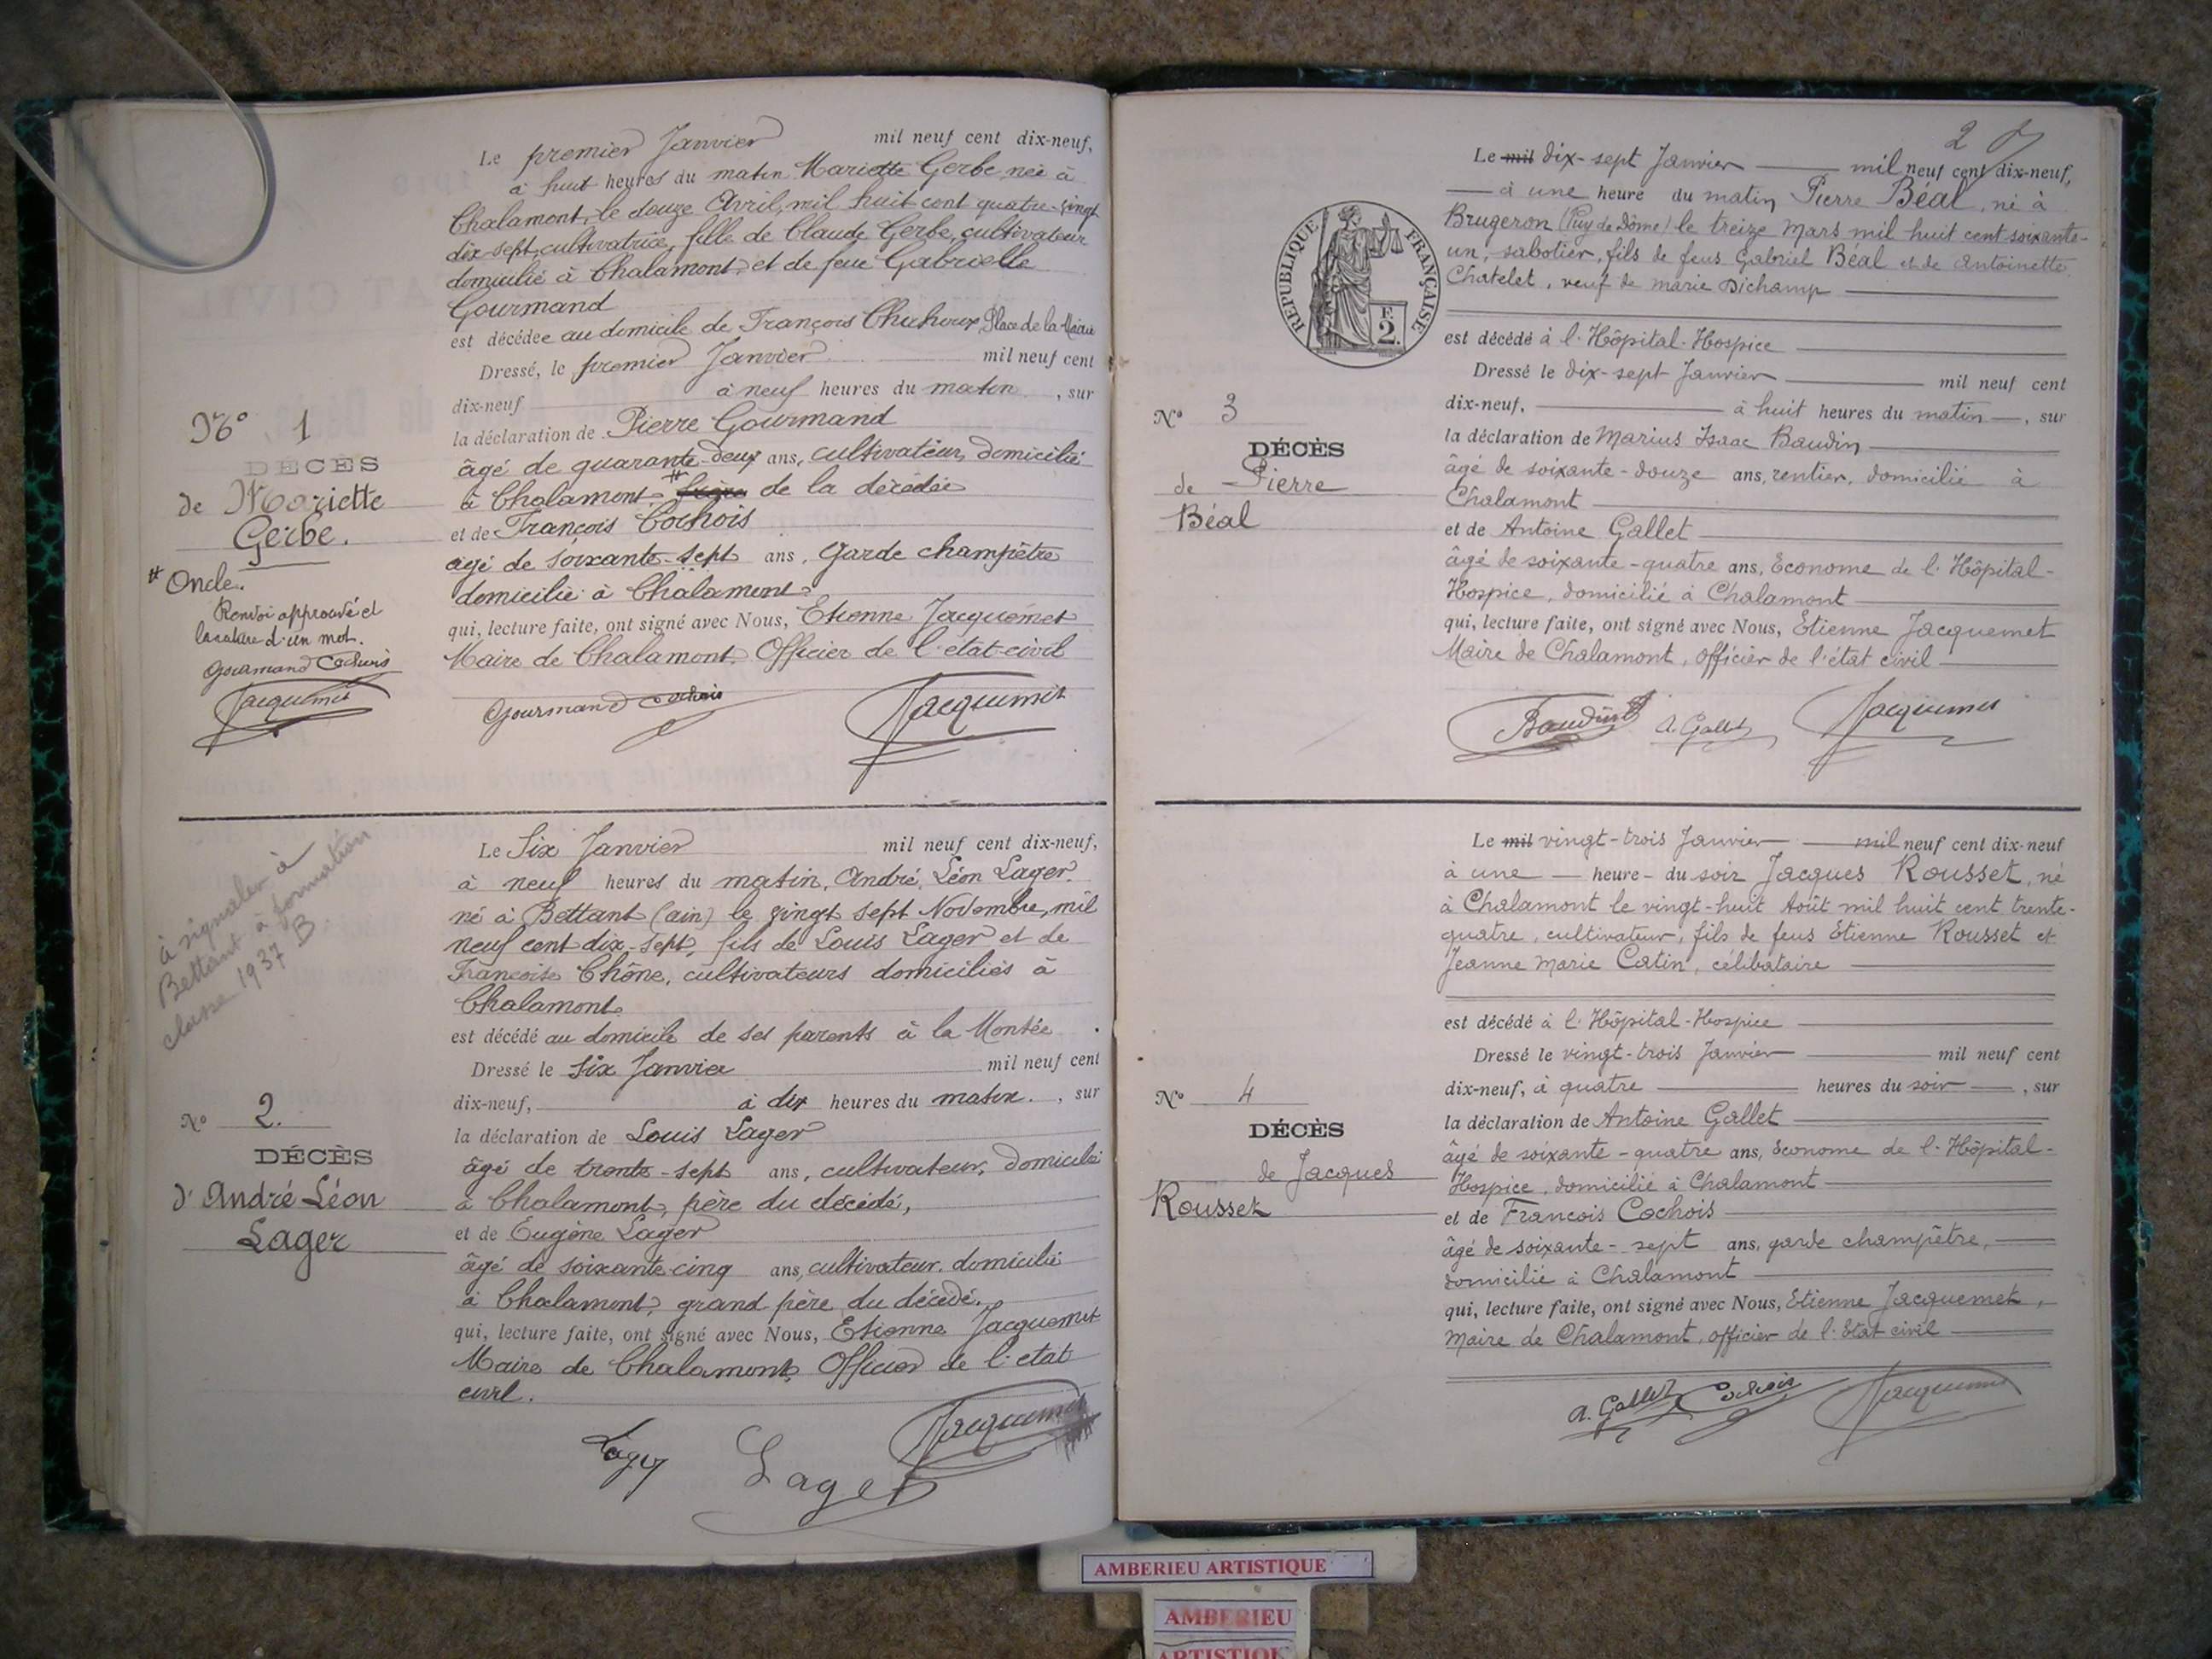 Le premier Janvier mil neuf cent dix-neuf,
à huit heures du matin Mariette Gerbe née à
Chalamont, le douze Avril, mil huit cent quatre-vingt
dix-sept, cultivatrice, fille de Claude Gerbe, cultivateur
domicilié à Chalamont, et de feue Gabrielle
Gourmand
est décédée au domicile de François Place de la Mairie
Dressé, le premier Janvier mil neuf cent
dix-neuf à neuf heures du matin, sur
la déclaration de Pierre Gourmand
âgé de quarante-deux ans, cultivateur, domicilié
à Chalamont, # frère de la décédée
et de François Cochois
âgé de soixante-sept ans, garde champêtre
domicilié à Chalamont
qui, lecture faite, ont signé avec Nous, Etienne Jacquemet
Maire de Chalamont, Officier de l'état-civil
Gourmand Cochois Jacquemet
No 1
DÉCÈS
de Mariette
Gerbe.
# Oncle.
Renvoi approuvé et
la rature d'un mot.
Gourmand Cochois
Jacquemet
Le Six Janvier mil neuf cent dix-neuf,
à neuf heures du matin, André, Léon Lager.
né à Bettant (ain) le vingt sept Novembre, mil
neuf cent dix-sept, fils de Louis Lager et de
Françoise Chêne, cultivateurs domiciliés à
Chalamont.
est décédé au domicile de ses parents à la Montée
Dressé le six Janvier mil neuf cent
dix-neuf, à dix heures du matin, sur
la déclaration de Louis Lager
âgé de trente-sept ans, cultivateur, domicilié
à Chalamont, père du décédé,
et de Eugène Lager
âgé de soixante-cinq ans, cultivateur, domicilié
à Chalamont, grand père du décédé.
qui, lecture faite, ont signé avec Nous, Etienne Jacquemet
Maire de Chalamont, Officier de l'état
civil.
Lager Lager Jacquemet
à signaler à
Bettant à formation
classe 1937 B.
No 2.
DÉCÈS
d'André Léon
Lager
2
Le mil dix-sept Janvier mil neuf cent dix-neuf,
à une heure du matin Pierre Béal, né à
Brugeron (Puy de Dôme) le treize Mars mil huit cent soixante-
un, sabotier, fils de feus Gabriel Béal et de Antoinette
Chatelet, veuf de Marie Dichamp
est décédé à l'Hôpital-Hospice
Dressé le dix-sept Janvier mil neuf cent
dix-neuf, à huit heures du matin, sur
la déclaration de Marius Isaac Baudin
âgé de soixante-douze ans, rentier, domicilié à
Chalamont
et de Antoine Gallet
âgé de soixante-quatre ans, Econome de l'Hôpital-
Hospice, domicilié à Chalamont
qui, lecture faite, ont signé avec Nous, Etienne Jacquemet
Maire de Chalamont, officier de l'état civil
Baudin A. Gallet Jacquemet
RÉPUBLIQUE FRANÇAISE
F.
2.
No 3
DÉCÈS
de Pierre
Béal
Le mil vingt-trois Janvier mil neuf cent dix-neuf
à une heure du soir Jacques Rousset, né
à Chalamont le vingt-huit Août mil huit cent trente-
quatre, cultivateur, fils de feus Etienne Rousset et
Jeanne Marie Catin, célibataire
est décédé à l'Hôpital-Hospice
Dressé le vingt-trois Janvier mil neuf cent
dix-neuf, à quatre heures du soir, sur
la déclaration de Antoine Gallet
âgé de soixante-quatre ans, Econome de l'Hôpital-
Hospice, domicilié à Chalamont
et de François Cochois
âgé de soixante-sept ans, garde champêtre,
domicilié à Chalamont
qui, lecture faite, ont signé avec Nous, Etienne Jacquemet,
Maire de Chalamont, officier de l'Etat civil
A. Gallet Cochois Jacquemet
No 4
DÉCÈS
de Jacques
Rousset
AMBERIEU ARTISTIQUE
AMBERIEU
ARTISTIQUE